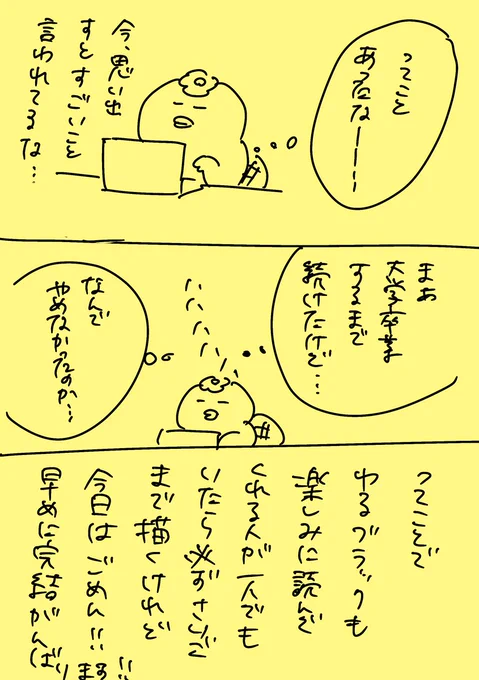 ってこと
あったなーーー
今、思い出
すとすごいこと
言われてるな…
まあ
大学卒業
するまで
続けたけど…
ハハハハハ
なんで
やめなかったのか…
ってことで
わるブラックも
楽しみに読んで
くれる人が一人でも
いたら必ずさいご
まで描くけれど
今日はごめん!!
早めに完結がんばり
ます!!